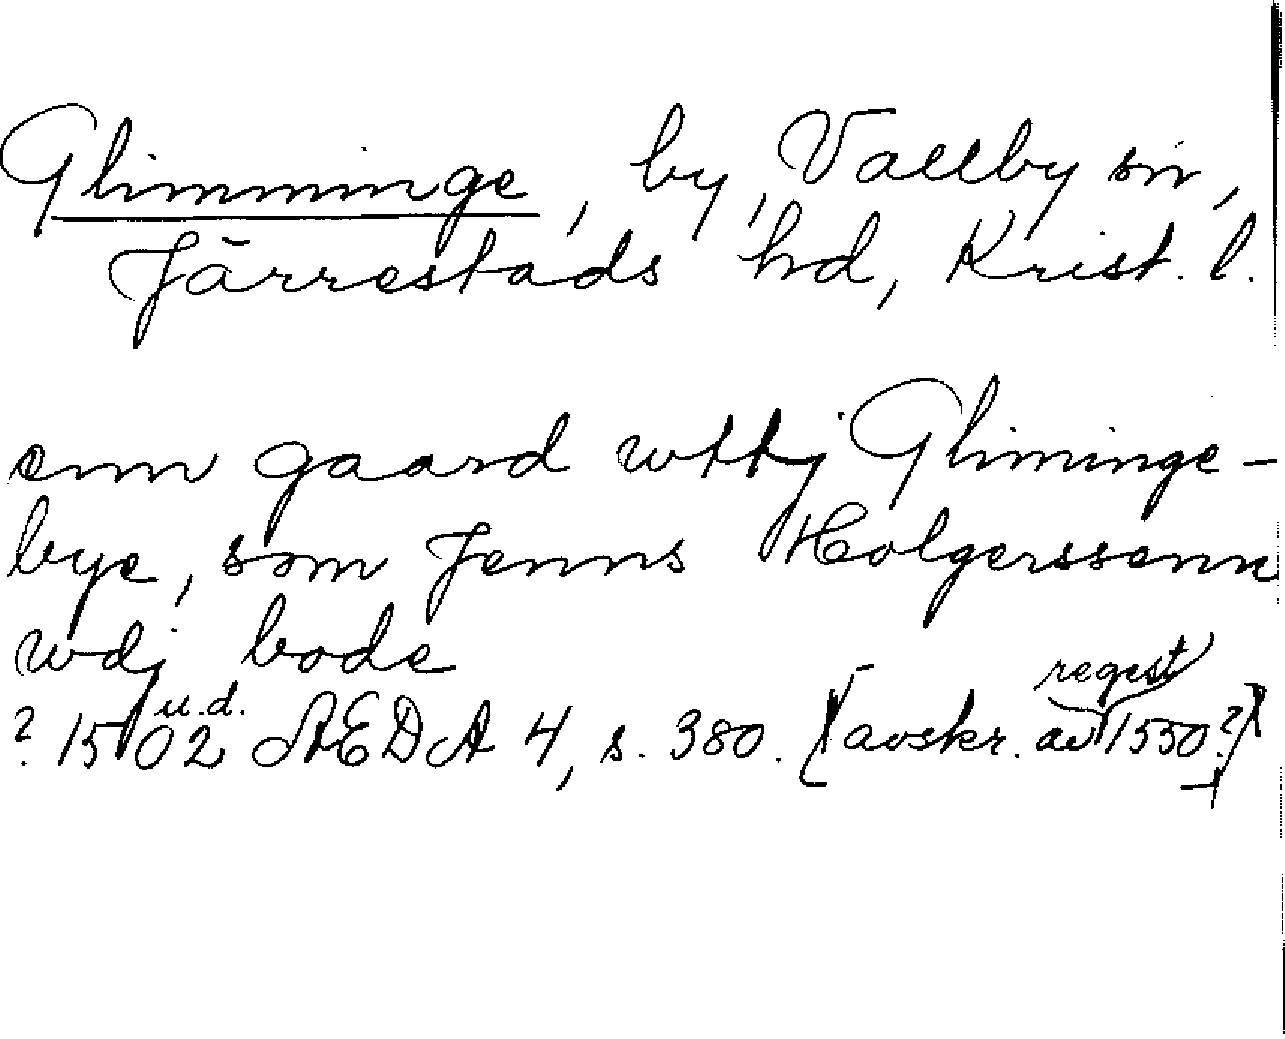 Glimminge, by, Vallby sn,
Järrestads hd, Krist. l.
enn gaard wttj Gliminge-
bye, som Jenns Holgerssenn
wdj bode
? 1502 u.d. ÆDA 4, s. 380. [avskr. av regest 1550?]